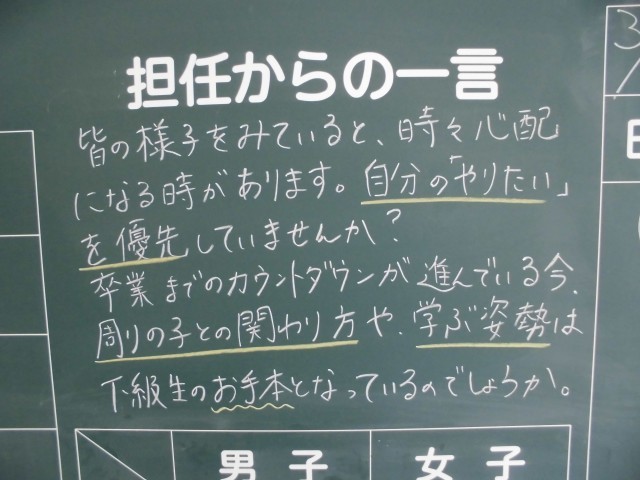 担任からの一言
皆の様子をみていると、時々心配
になる時があります。自分の「やりたい」
を優先していませんか?
卒業までのカウントダウンが進んでいる今、
周りの子との関わり方や、学ぶ姿勢は
下級生のお手本となっているのでしょうか。
男子 女子
3/